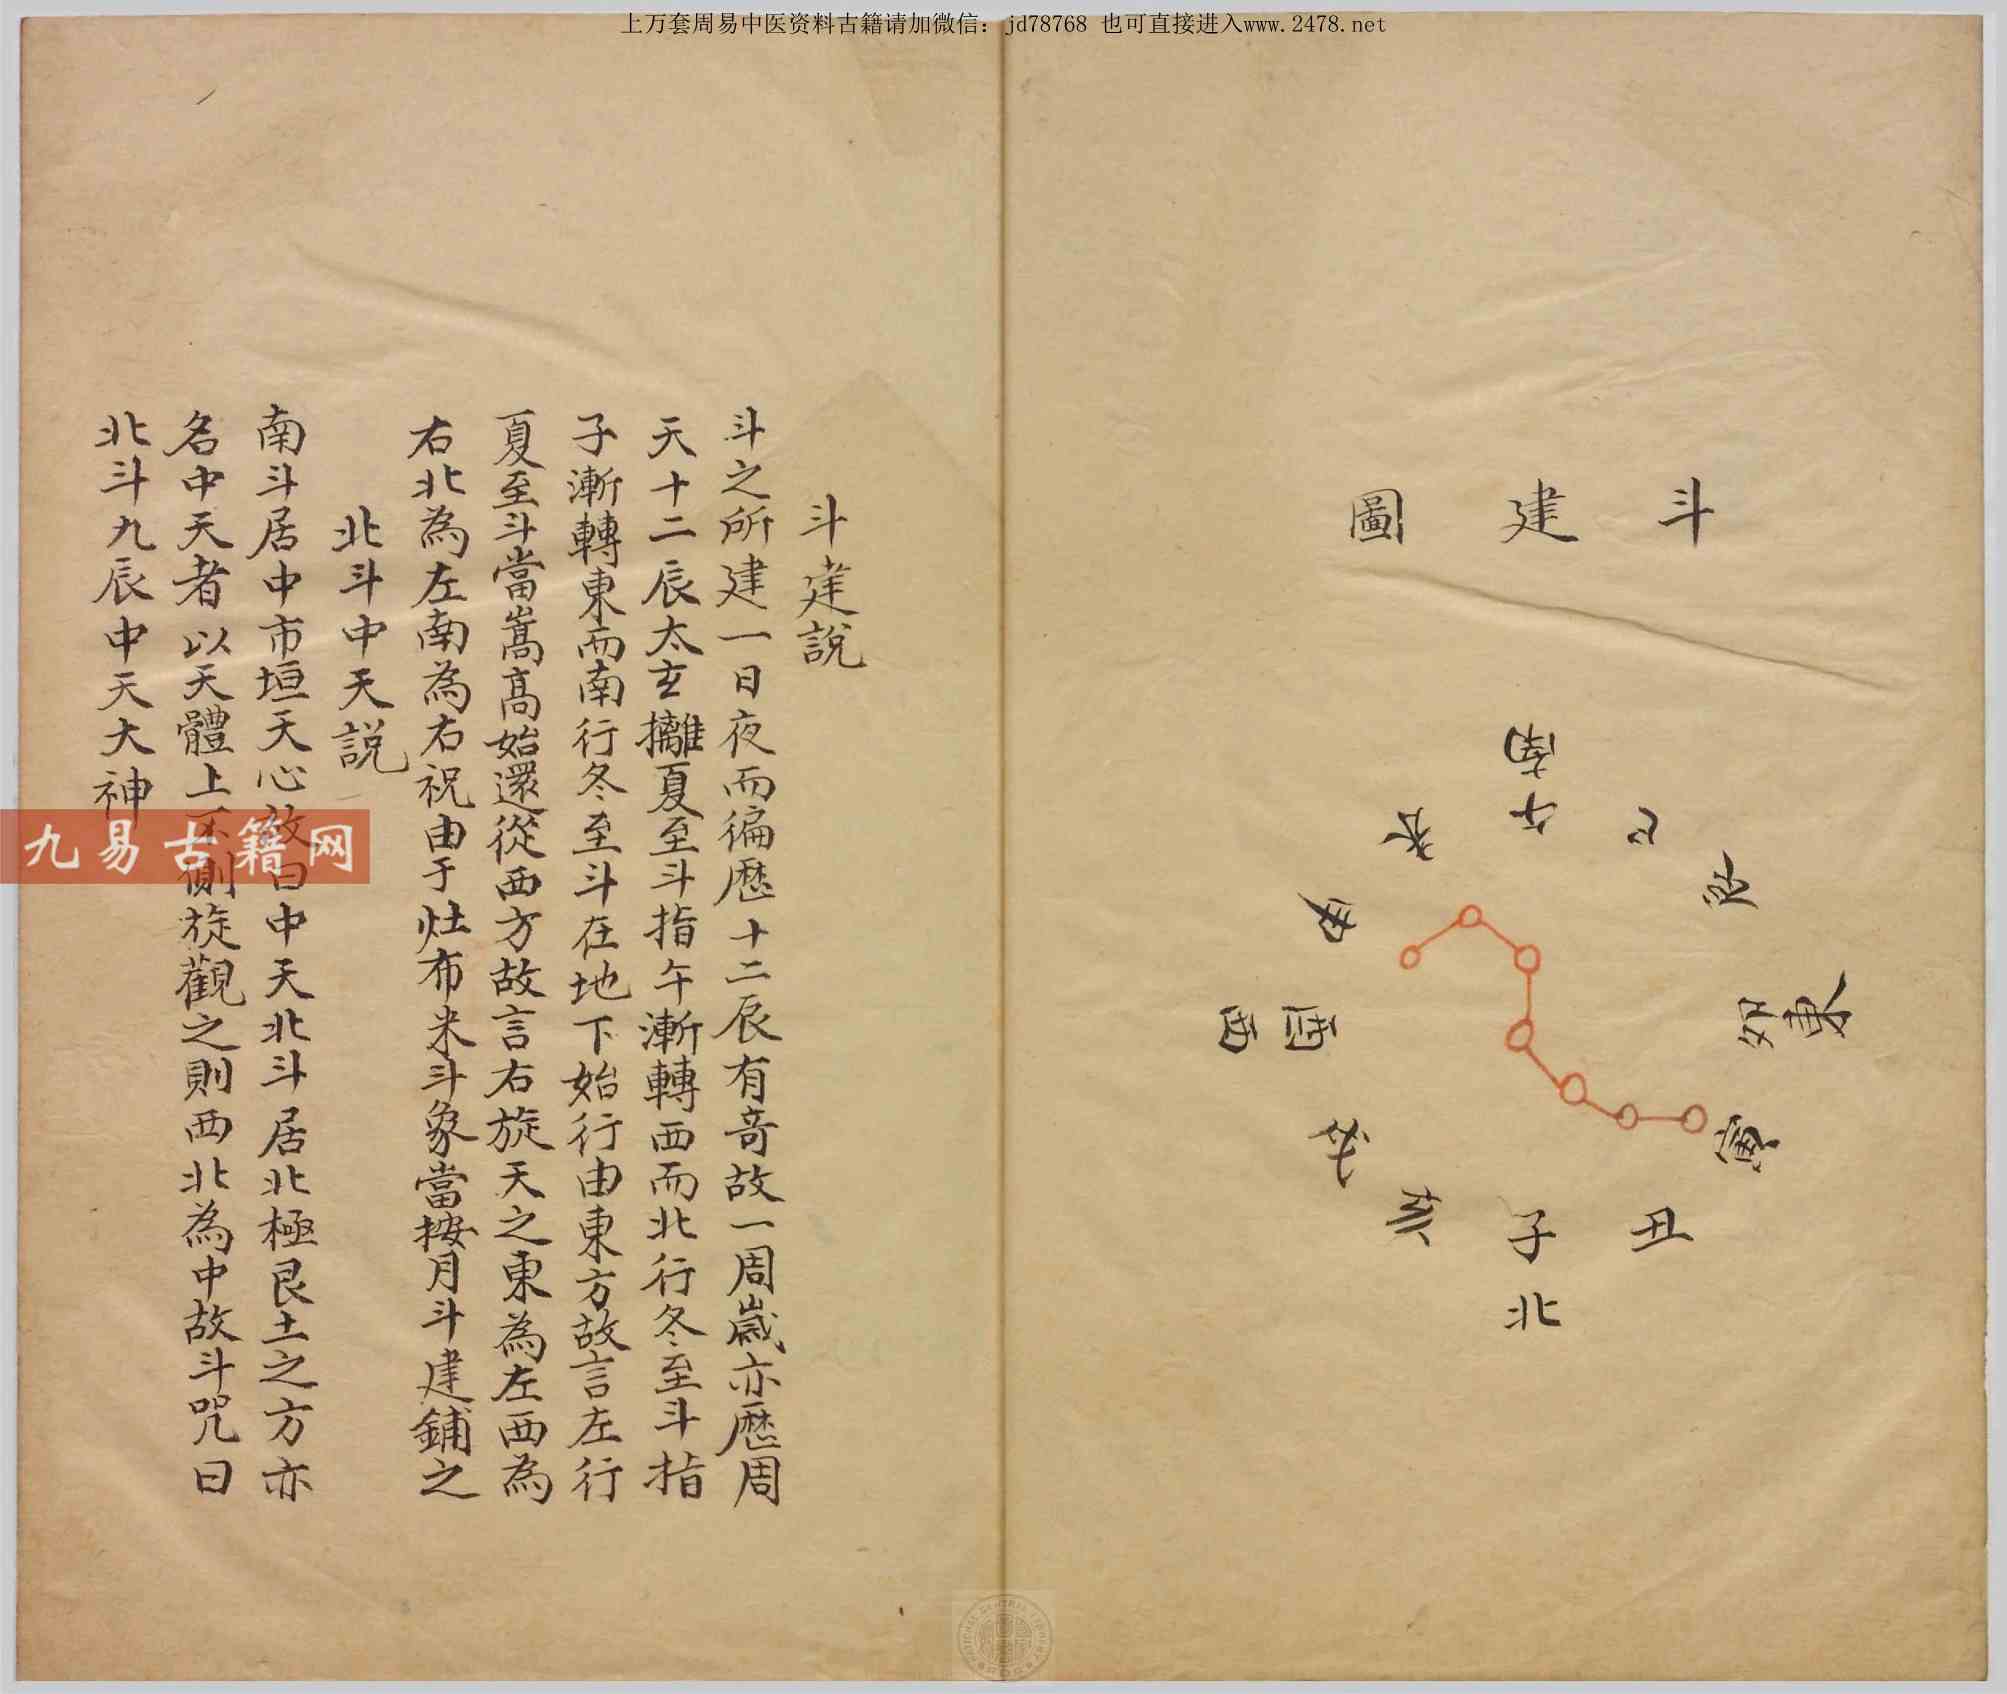 上万套周易中医资料古籍请加微信：jd78768 也可直接进入www.2478.net
斗建圖
南
午
巳
辰
卯東
寅
丑
子
北
亥
戌
酉西
申
未
斗建說
斗之所建一日夜而徧歷十二辰有竒故一周歲亦歷周
天十二辰太玄攡夏至斗指午漸轉西而北行冬至斗指
子漸轉東而南行冬至斗在地下始行由東方故言左行
夏至斗當嵩高始還從西方故言右旋天之東為左西為
右北為左南為右祝由于灶布米斗象當按月斗建鋪之
北斗中天說
南斗居中市垣天心故曰中天北斗居北極艮土之方亦
名中天者以天體上側旋觀之則西北為中故斗咒曰
北斗九辰中天大神
九易古籍网